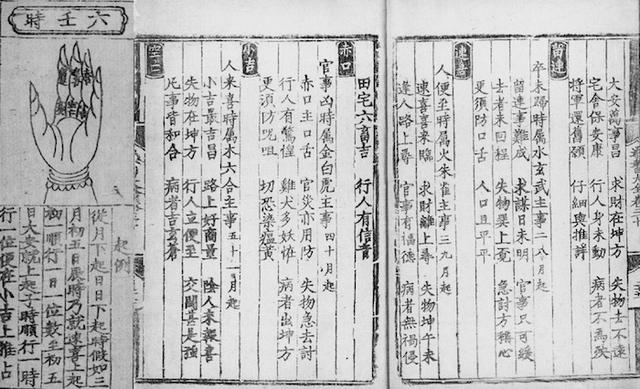 留連
大安萬事昌 求財在坤方 失物去不遠
宅舍保安康 行人身未動 病者不為殃
將軍還舊願 仔細與推詳
卒未歸時属水玄武主事二八月起
留連事難成 求謀日未明 官事只可緩
去者未回程 失物巽上覓 急討方穩心
更須防口舌 人口且平平
速喜
人便至時属火朱雀主事三九月起
速喜喜來臨 求財離上尋 失物坤午未
逢人路上尋 官事有福德 病者無禍侵
田宅六畜吉 行人有信音
赤口
官事凶時属金白虎主事四十月起
赤口主口舌 官災亦用防 失物急去討
行人有驚惶 雞犬多妖怪 病者出坤方
更須防咒咀 切恐染瘟黄
小吉
人來喜時属木六合主事五十一月起
小吉最吉昌 路上好商量 陰人來報喜
失物在坤方 行人立便至 交關甚是強
凡事皆和合 病者
空亡
六壬時
起例
從月下起日日下起時假如三
月初五日辰時乃就速喜上起
初一順行一日一位數至初五
日大安就上起子時順行一時
行一位便在小吉上推占